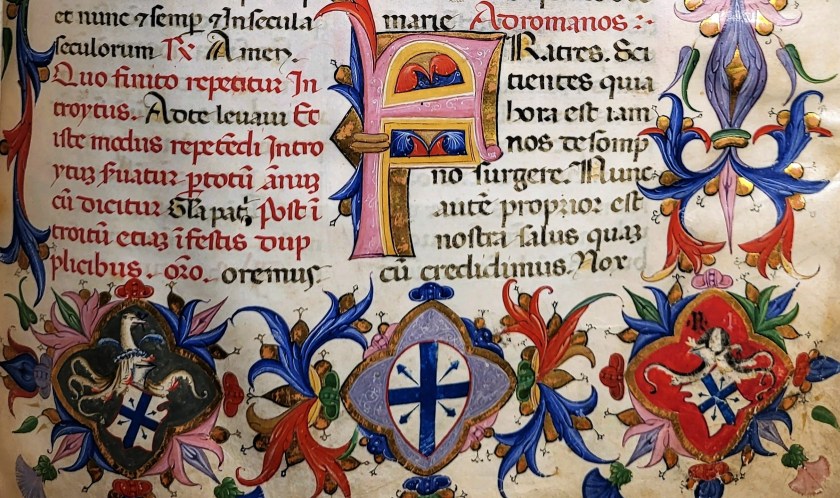 et nunc ⁊ semꝑ ⁊ In secula
seculorum ℞ Amen.
Quo finito repetitur In
troytus. Adte levavi Et
iste modus repetēdi Intro
ytuȝ ẜuatur ꝑ totū ānuȝ
cū dicitur Gl̄a pat̄. Post ī
troitū etiaȝ ī festis dup
plicibus. oro. oremus
marie Adromanos :·
FRatres. Sci
tientes quia
hora est iam
nos desomp
no surgere. Nunc
autē proprior est
nostra salus quaȝ
cū credidimus. Nox
R I